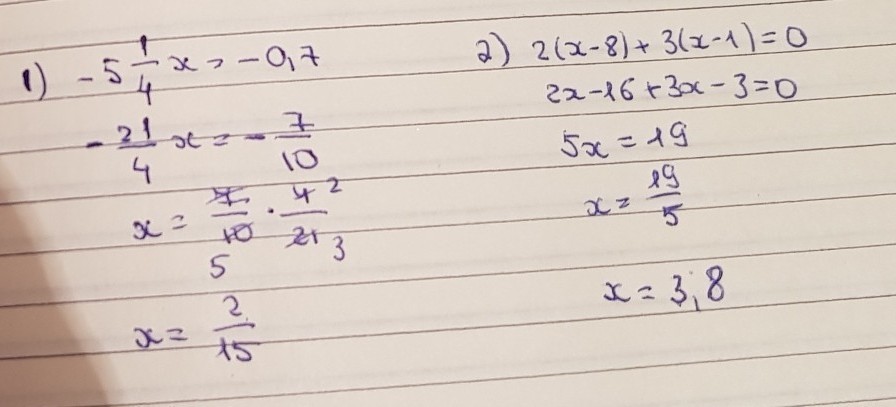 1) -5 1/4 x = -0,7
- 21/4 x = - 7/10
x = 7/10 · 4/21 2
5 3
x = 2/15
2) 2(x-8) + 3(x-1) = 0
2x-16+3x-3=0
5x = 19
x = 19/5
x = 3,8